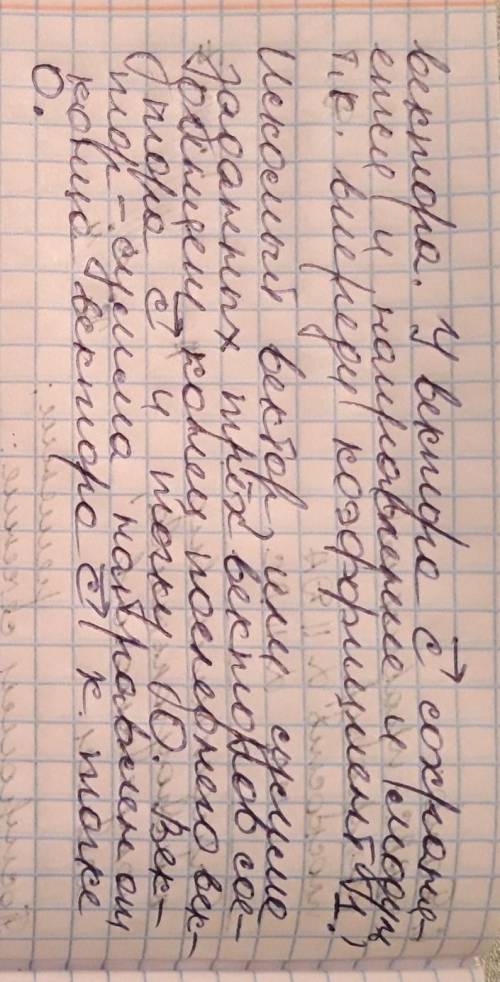 вектора. У вектора c⃗ сохраня-
ется и направление и модуль
т.к. впереди коэффициент 1,
Искомый вектор или сумма
заданных трёх векторов сое-
диняет конец последнего век-
тора c⃗ и точку О. Век-
тор-сумма направлен от
конца вектора c⃗ к точке
О.